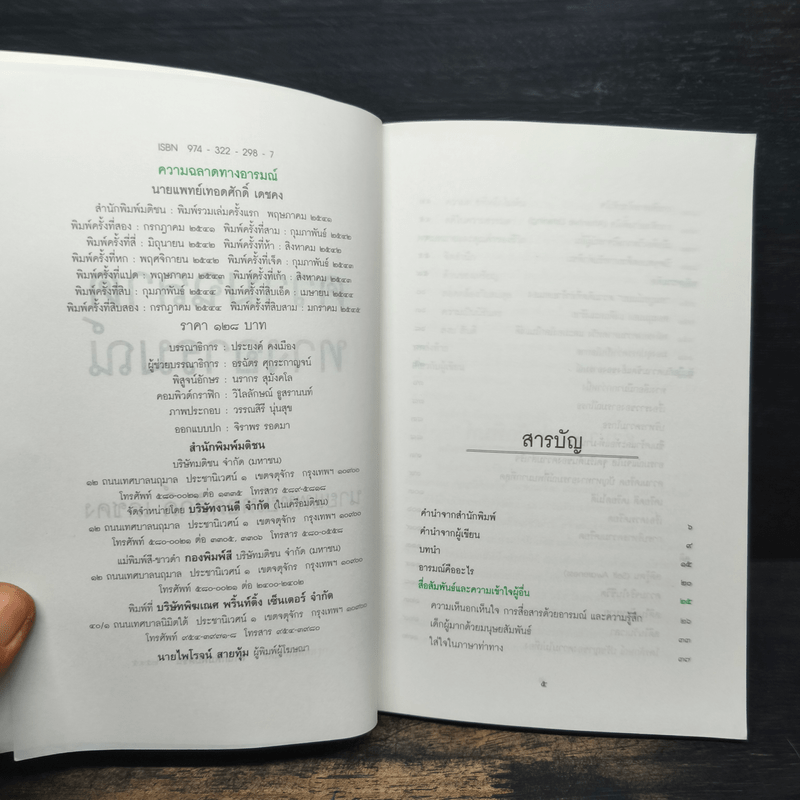 ISBN 974 - 322 - 298 - 7
ความฉลาดทางอารมณ์
นายแพทย์เทอดศักดิ์ เดชคง
สำนักพิมพ์มติชน : พิมพ์รวมเล่มครั้งแรก พฤษภาคม ๒๕๔๑
พิมพ์ครั้งที่สอง : กรกฎาคม ๒๕๔๑ พิมพ์ครั้งที่สาม : กุมภาพันธ์ ๒๕๔๒
พิมพ์ครั้งที่สี่ : มิถุนายน ๒๕๔๒ พิมพ์ครั้งที่ห้า : สิงหาคม ๒๕๔๒
พิมพ์ครั้งที่หก : พฤศจิกายน ๒๕๔๒ พิมพ์ครั้งที่เจ็ด : กุมภาพันธ์ ๒๕๔๓
พิมพ์ครั้งที่แปด : พฤษภาคม ๒๕๔๓ พิมพ์ครั้งที่เก้า : สิงหาคม ๒๕๔๓
พิมพ์ครั้งที่สิบ : กุมภาพันธ์ ๒๕๔๔ พิมพ์ครั้งที่สิบเอ็ด : เมษายน ๒๕๔๔
พิมพ์ครั้งที่สิบสอง : กรกฎาคม ๒๕๔๔ พิมพ์ครั้งที่สิบสาม : มกราคม ๒๕๔๕
ราคา ๑๒๘ บาท
บรรณาธิการ : ประยงค์ คงเมือง
ผู้ช่วยบรรณาธิการ : อรฉัตร ศุกระกาญจน์
พิสูจน์อักษร : นรากร สุมังคโล
คอมพิวต์กราฟิก : วิไลลักษณ์ อูสรานนท์
ภาพประกอบ : วรรณสิรี นุ่นสุข
ออกแบบปก : จิราพร รอดมา
สำนักพิมพ์มติชน
บริษัทมติชน จำกัด (มหาชน)
๑๒ ถนนเทศบาลนฤมาล ประชานิเวศน์ ๑ เขตจตุจักร กรุงเทพฯ ๑๐๙๐๐
โทรศัพท์ ๕๘๐-๐๐๒๑ ต่อ ๑๓๓๕ โทรสาร ๕๘๙-๕๘๑๘
จัดจำหน่ายโดย บริษัทงานดี จำกัด (ในเครือมติชน)
๑๒ ถนนเทศบาลนฤมาล ประชานิเวศน์ ๑ เขตจตุจักร กรุงเทพฯ ๑๐๙๐๐
โทรศัพท์ ๕๘๐-๐๐๒๑ ต่อ ๓๓๐๕, ๓๓๐๖ โทรสาร ๕๘๐-๐๕๕๘
แม่พิมพ์สี-ขาวดำ กองพิมพ์สี บริษัทมติชน จำกัด (มหาชน)
๑๒ ถนนเทศบาลนฤมาล ประชานิเวศน์ ๑ เขตจตุจักร กรุงเทพฯ
โทรศัพท์ ๕๘๐-๐๐๒๑ ต่อ ๒๔๐๐-๒๔๐๒
พิมพ์ที่ บริษัทพิฆเณศ พริ้นท์ติ้ง เซ็นเตอร์ จำกัด
๔๐/๑ ถนนเทศบาลนิมิตใต้ ประชานิเวศน์ ๑ เขตจตุจักร กรุงเทพฯ ๑๐๙๐๐
โทรศัพท์ ๙๕๔-๓๙๗๑-๘ โทรสาร ๙๕๔-๓๙๘๐
นายไพโรจน์ สายทุ้ม ผู้พิมพ์ผู้โฆษณา
สารบัญ
คำนำจากสำนักพิมพ์ ๖
คำนำจากผู้เขียน ๙
บทนำ ๑๕
อารมณ์คืออะไร ๒๐
สื่อสัมพันธ์และความเข้าใจผู้อื่น ๒๕
ความเห็นอกเห็นใจ การสื่อสารด้วยอารมณ์ และความรู้สึก ๒๖
เด็กผู้มากด้วยมนุษยสัมพันธ์ ๓๓
ใส่ใจในภาษาท่าทาง ๓๗
๕